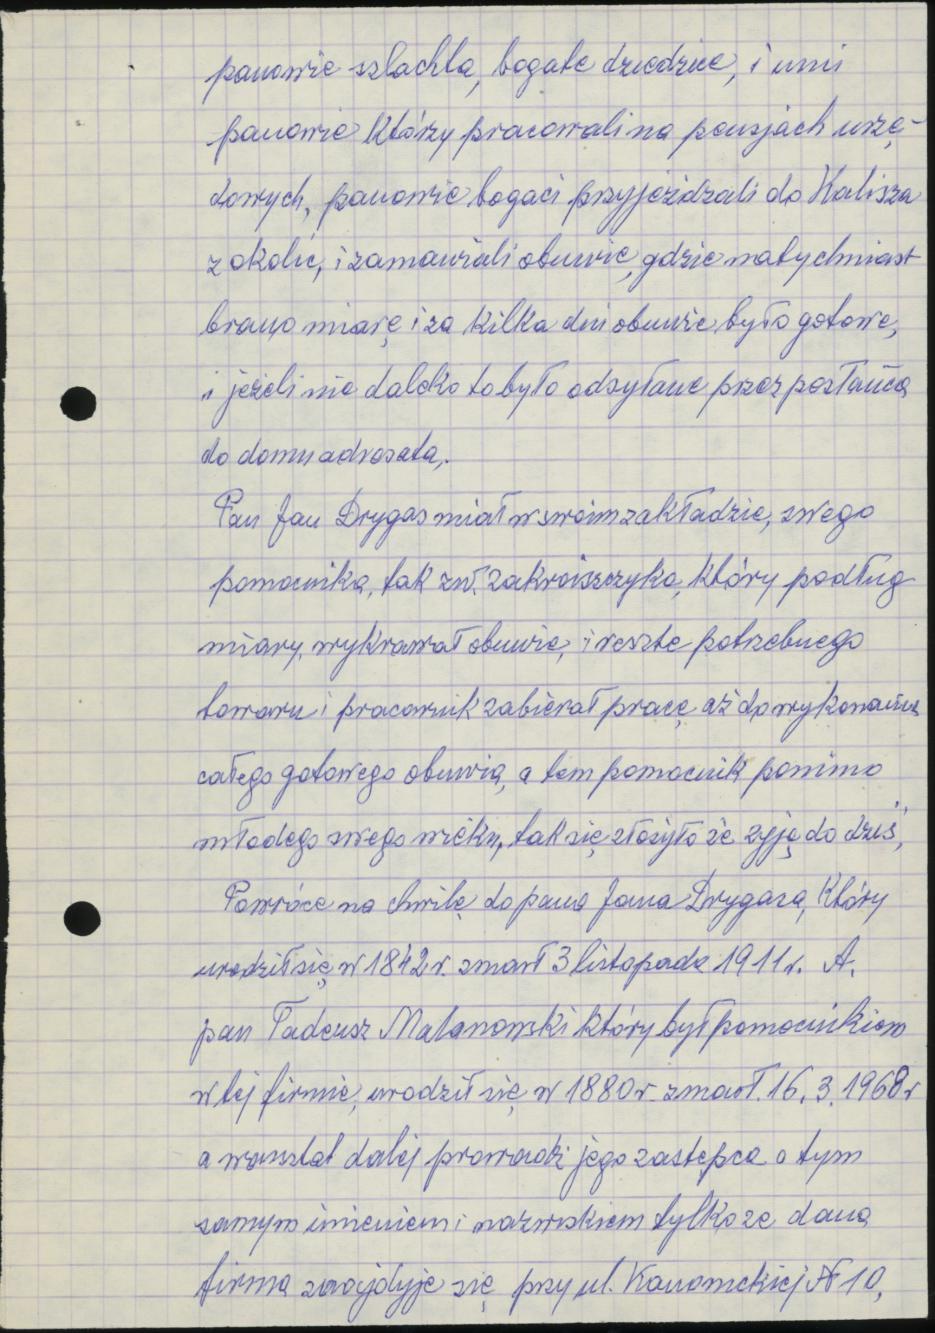 panowie szlachta, bogate dziedzice, i inni
panowie którzy pracowali na pensjach urzę-
dowych, panowie bogaci przyjeżdzali do Kalisza
z okolic, i zamawiali obuwie, gdzie natychmiast
brano miarę i za kilka dni obuwie było gotowe,
i jeżeli nie daleko to było odsyłane przez posłańca
do domu adresata,.
Pan Jan Drygas miał w swoim zakładzie, swego
pomocnika, tak zw. zakroiszczyka, który podług
miary, wykrawał obuwie, i reszte potrzebnego
towaru i pracownik zabierał pracę aż do wykonania
całego gotowego obuwia, a tem pomocnik pomimo
młodego swego wieku, tak się złożyło że żyję do dziś,
Powróce na chwilę do pana Jana Drygasa, który
urodził się w 1842 r. zmarł 3 listopada 1911 r. A.
pan Tadeusz Malanowski który był pomocnikiem
w tej firmie, urodził się w 1880 r. zmarł. 16. 3. 1968 r
a warsztat dalej prowadzi jego zastępca o tym
samym imieniem i nazwiskiem tylko ze dana
firma znajduje się przy ul. Kanonickiej № 10,